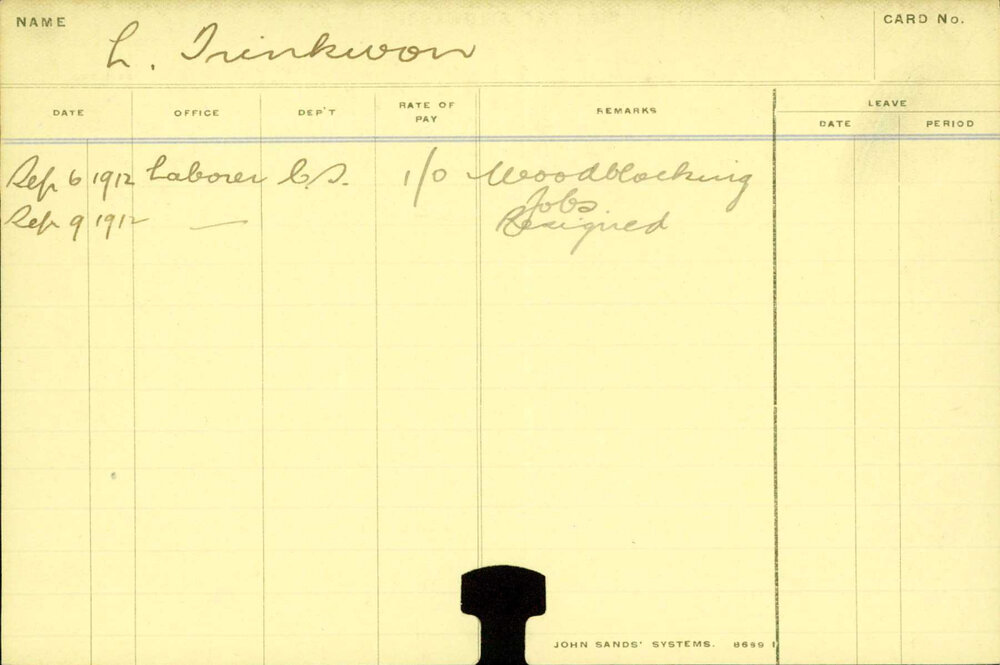 NAME
L. Trinkwon
CARD No.
DATE OFFICE DEP'T RATE OF PAY REMARKS LEAVE
DATE PERIOD
Sep 6 1912 Laborer C.S. 1/0 Woodblocking
Jobs
Sep 9 1912 — Resigned
JOHN SANDS' SYSTEMS. 8689